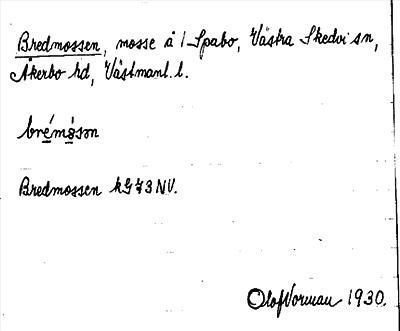 Bredmossen, mosse å 1 Spabo, Västra Skedvi sn,
Åkerbo hd, Västmanl. l.
bre´mo̤sən
Bredmossen kG 73 NV.
Olof Norman 1930.